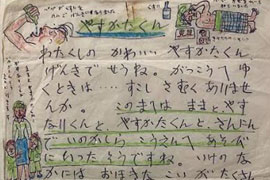 やすかたくん
わたくしの かわいい やすかたくん
げんきで せうね。がっこうへ ゆ
くときは・・・・・ すこし さむく ありませ
んか。 このまへは ままと、やす
なりくんと、やすかたくんと、さんにん
で、いのかしら こうえんへ あそび
に いった そうですね。 いけの な
かには おほきな こいが たくさん